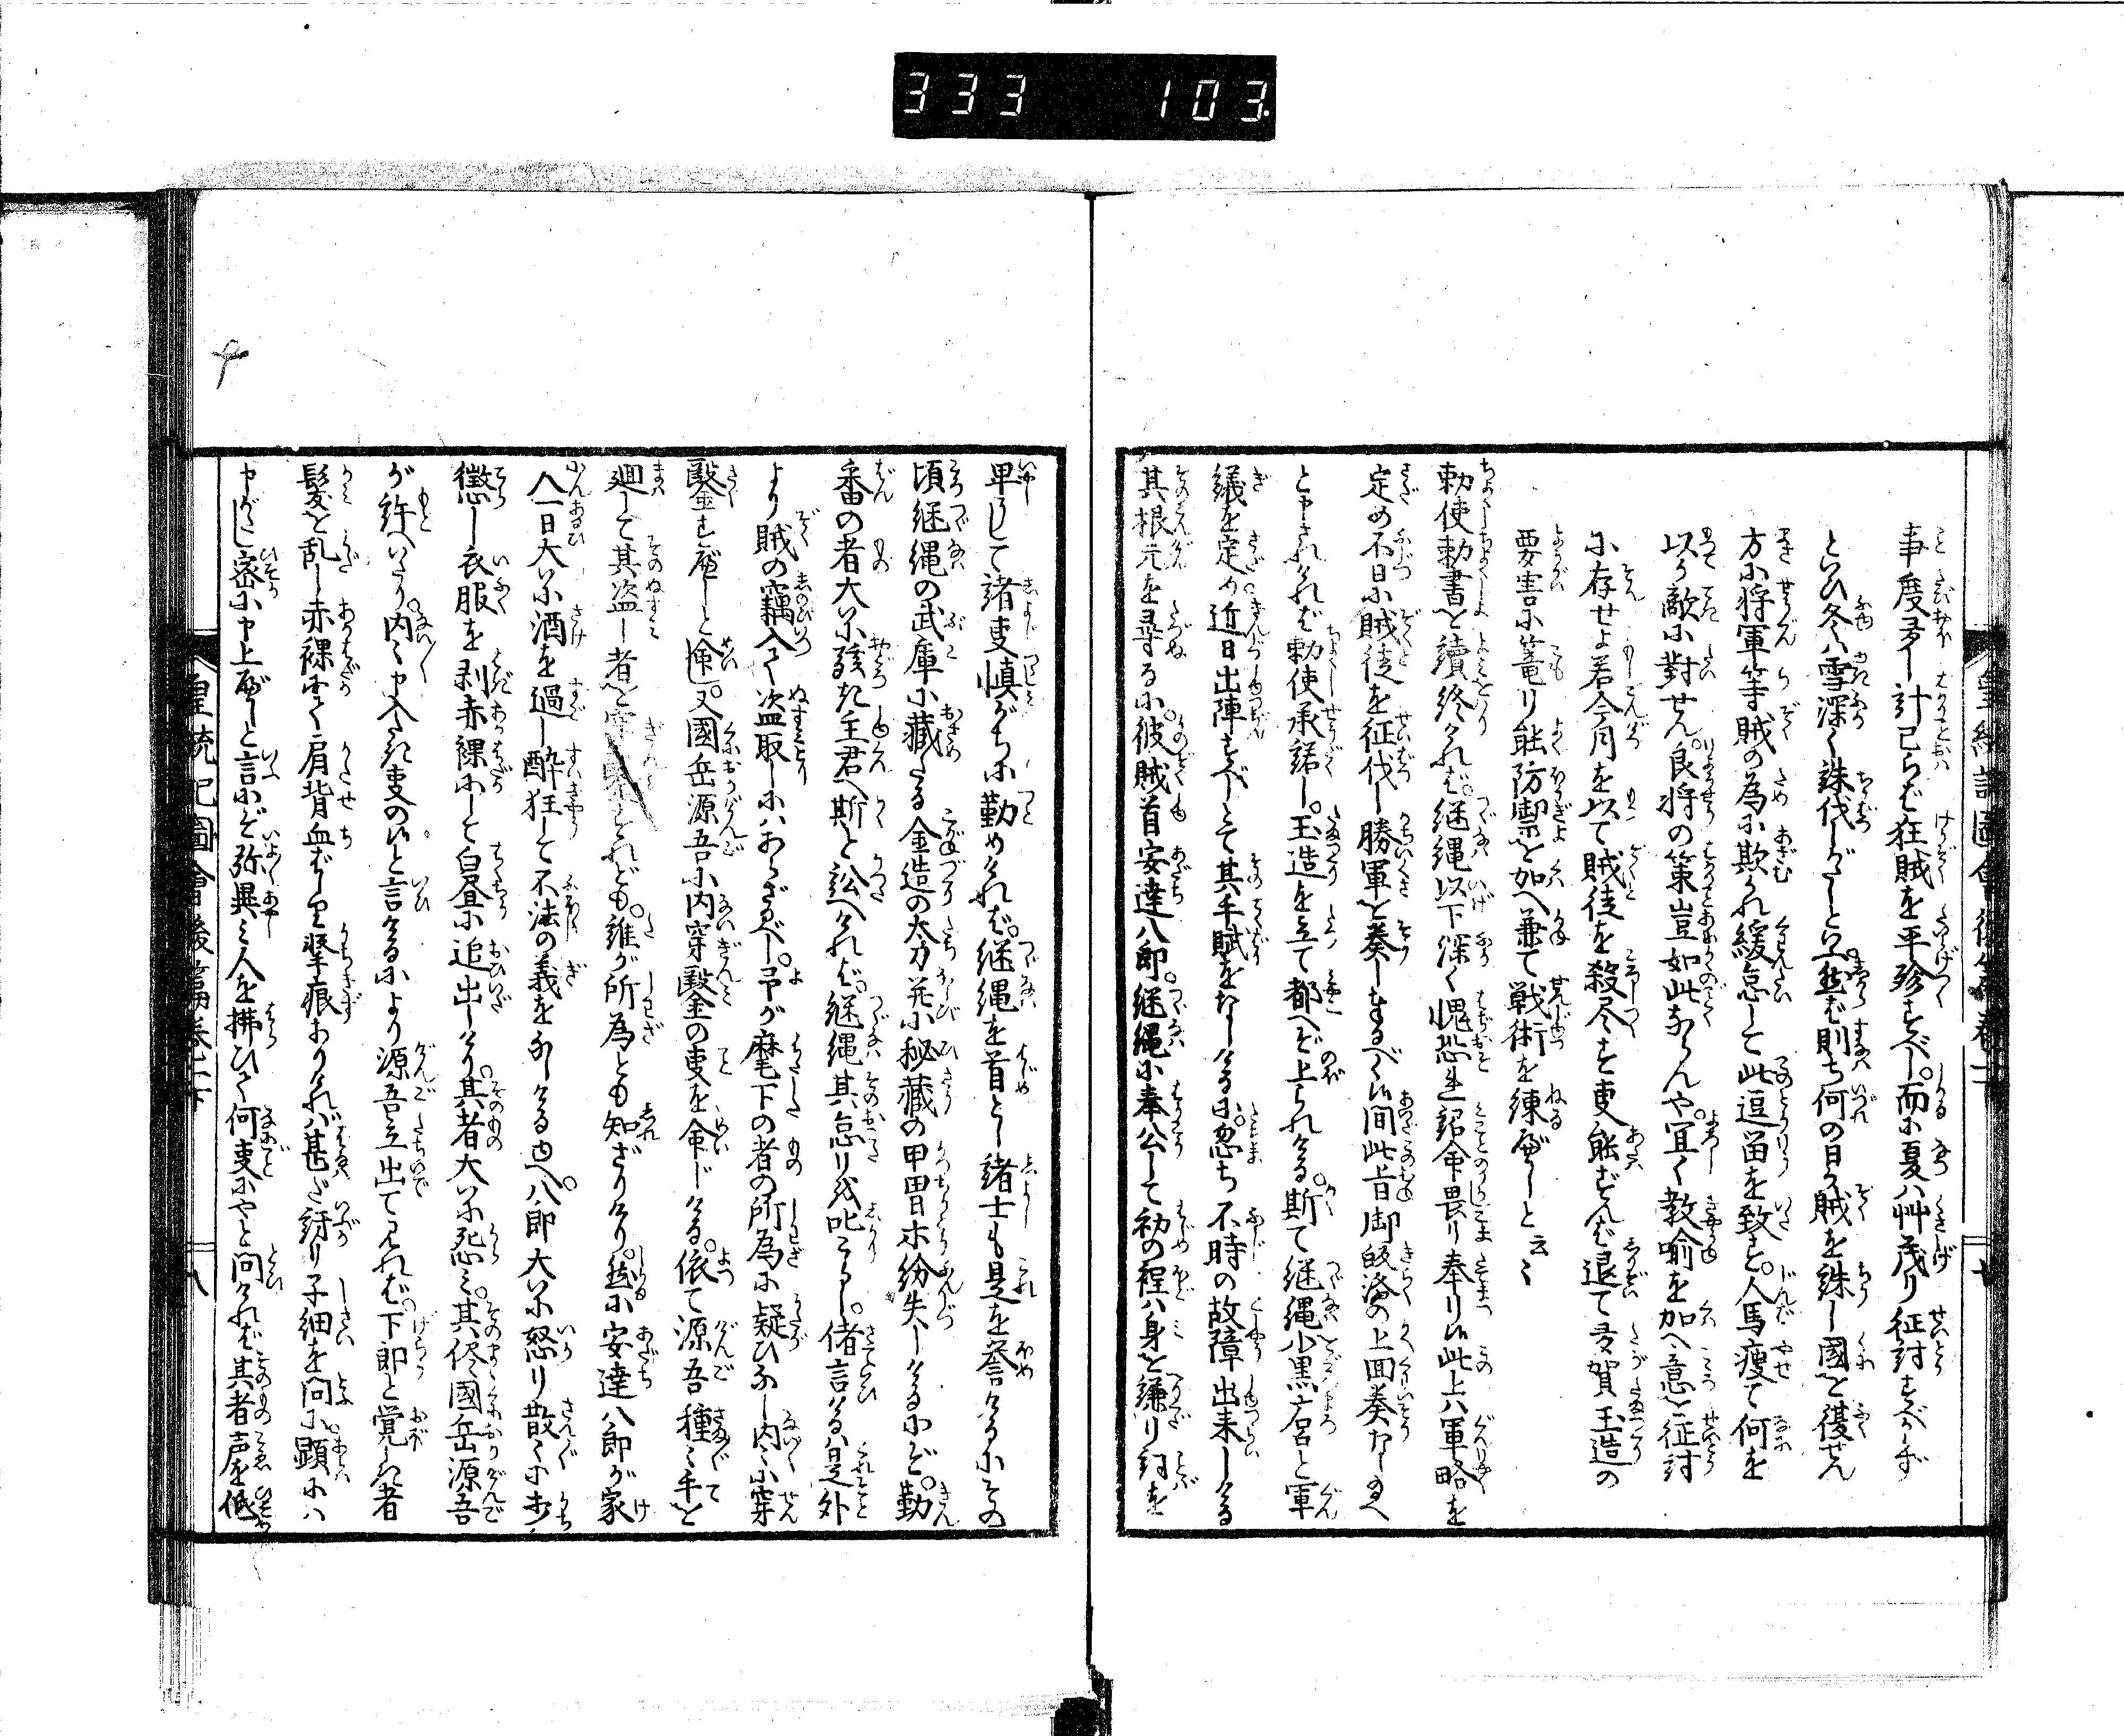 333 103.
皇統記圖會後篇卷二下
事度多し計已らば狂賊を平殄すべし。而に夏ハ艸茂り征討すべからず
といひ冬ハ雪深く誅伐しがたしといふ。然ば則ち何の日か賊を誅し國を復せん
方に将軍等賊の為に欺かれ緩怠して此逗留を致す。人馬痩て何を
以か敵に對せん。良将の策豈如此ならんや。宜く教喩を加へ意を征討
に存せよ若今月を以て賊徒を殺尽す事能ずんば退て多賀玉造の
要害に篭り能防禦を加へ兼て戦術を練べしと云々
勅使勅書を讀終ければ。継縄以下深く愧恐れ詔命畏り奉り候此上ハ軍略を
定め不日に賊徒を征伐し勝軍を奏しまゐるべく候間此旨御皈洛の上回奏なし給へ
と申されければ勅使承諾し。玉造を立て都へぞ上られける。斯て継縄小黒宮と軍
議を定め近日出陣すべしとて其手賦をなしける所に。忽ち不時の故障出来しける
其根元を尋るに彼賊首安達八郎。継縄に奉公して初の程ハ身を謙り詞を
卑ふして諸事慎がちに勤めければ。継縄を首とし諸士も是を誉けるにその
頃継縄の武庫に藏たる金造の太刀并に秘藏の甲冑本紛失しけるにぞ。勤
番の者大に駭き主君へ斯と訟へければ。継縄其怠りを叱こらし。偖言けるハ是外
より賊の竊入て盗取しにハあらざるべし。予が麾下の者の所為に疑ひなし内々に穿
鑿すべしと。又國岳源吾に内穿鑿の事を命じける。依て源吾種々手を
廻して其盗し者を穿鑿すれども。誰が所為とも知ざりけり。然に安達八郎が家
人一日大に酒を過し酔狂して不法の義をなしける由へ。八郎大に怒り散々に打
懲し衣服を剥赤裸にして白昼に追出しけり。其者大に恐ミ。其侭國岳源吾
が許へいたり。内々申入たき事の候と言けるにより源吾立出て見れば。下郎と覚しき者
髪を乱し赤裸にて肩背血ばしり撃痕ありけれバ甚だ訝り子細を問に顕にハ
申がたし密に申上べしと言にぞ弥異ミ人を拂ひて何事にやと問ければ其者声を低
皇統記圖會後篇卷二下
八